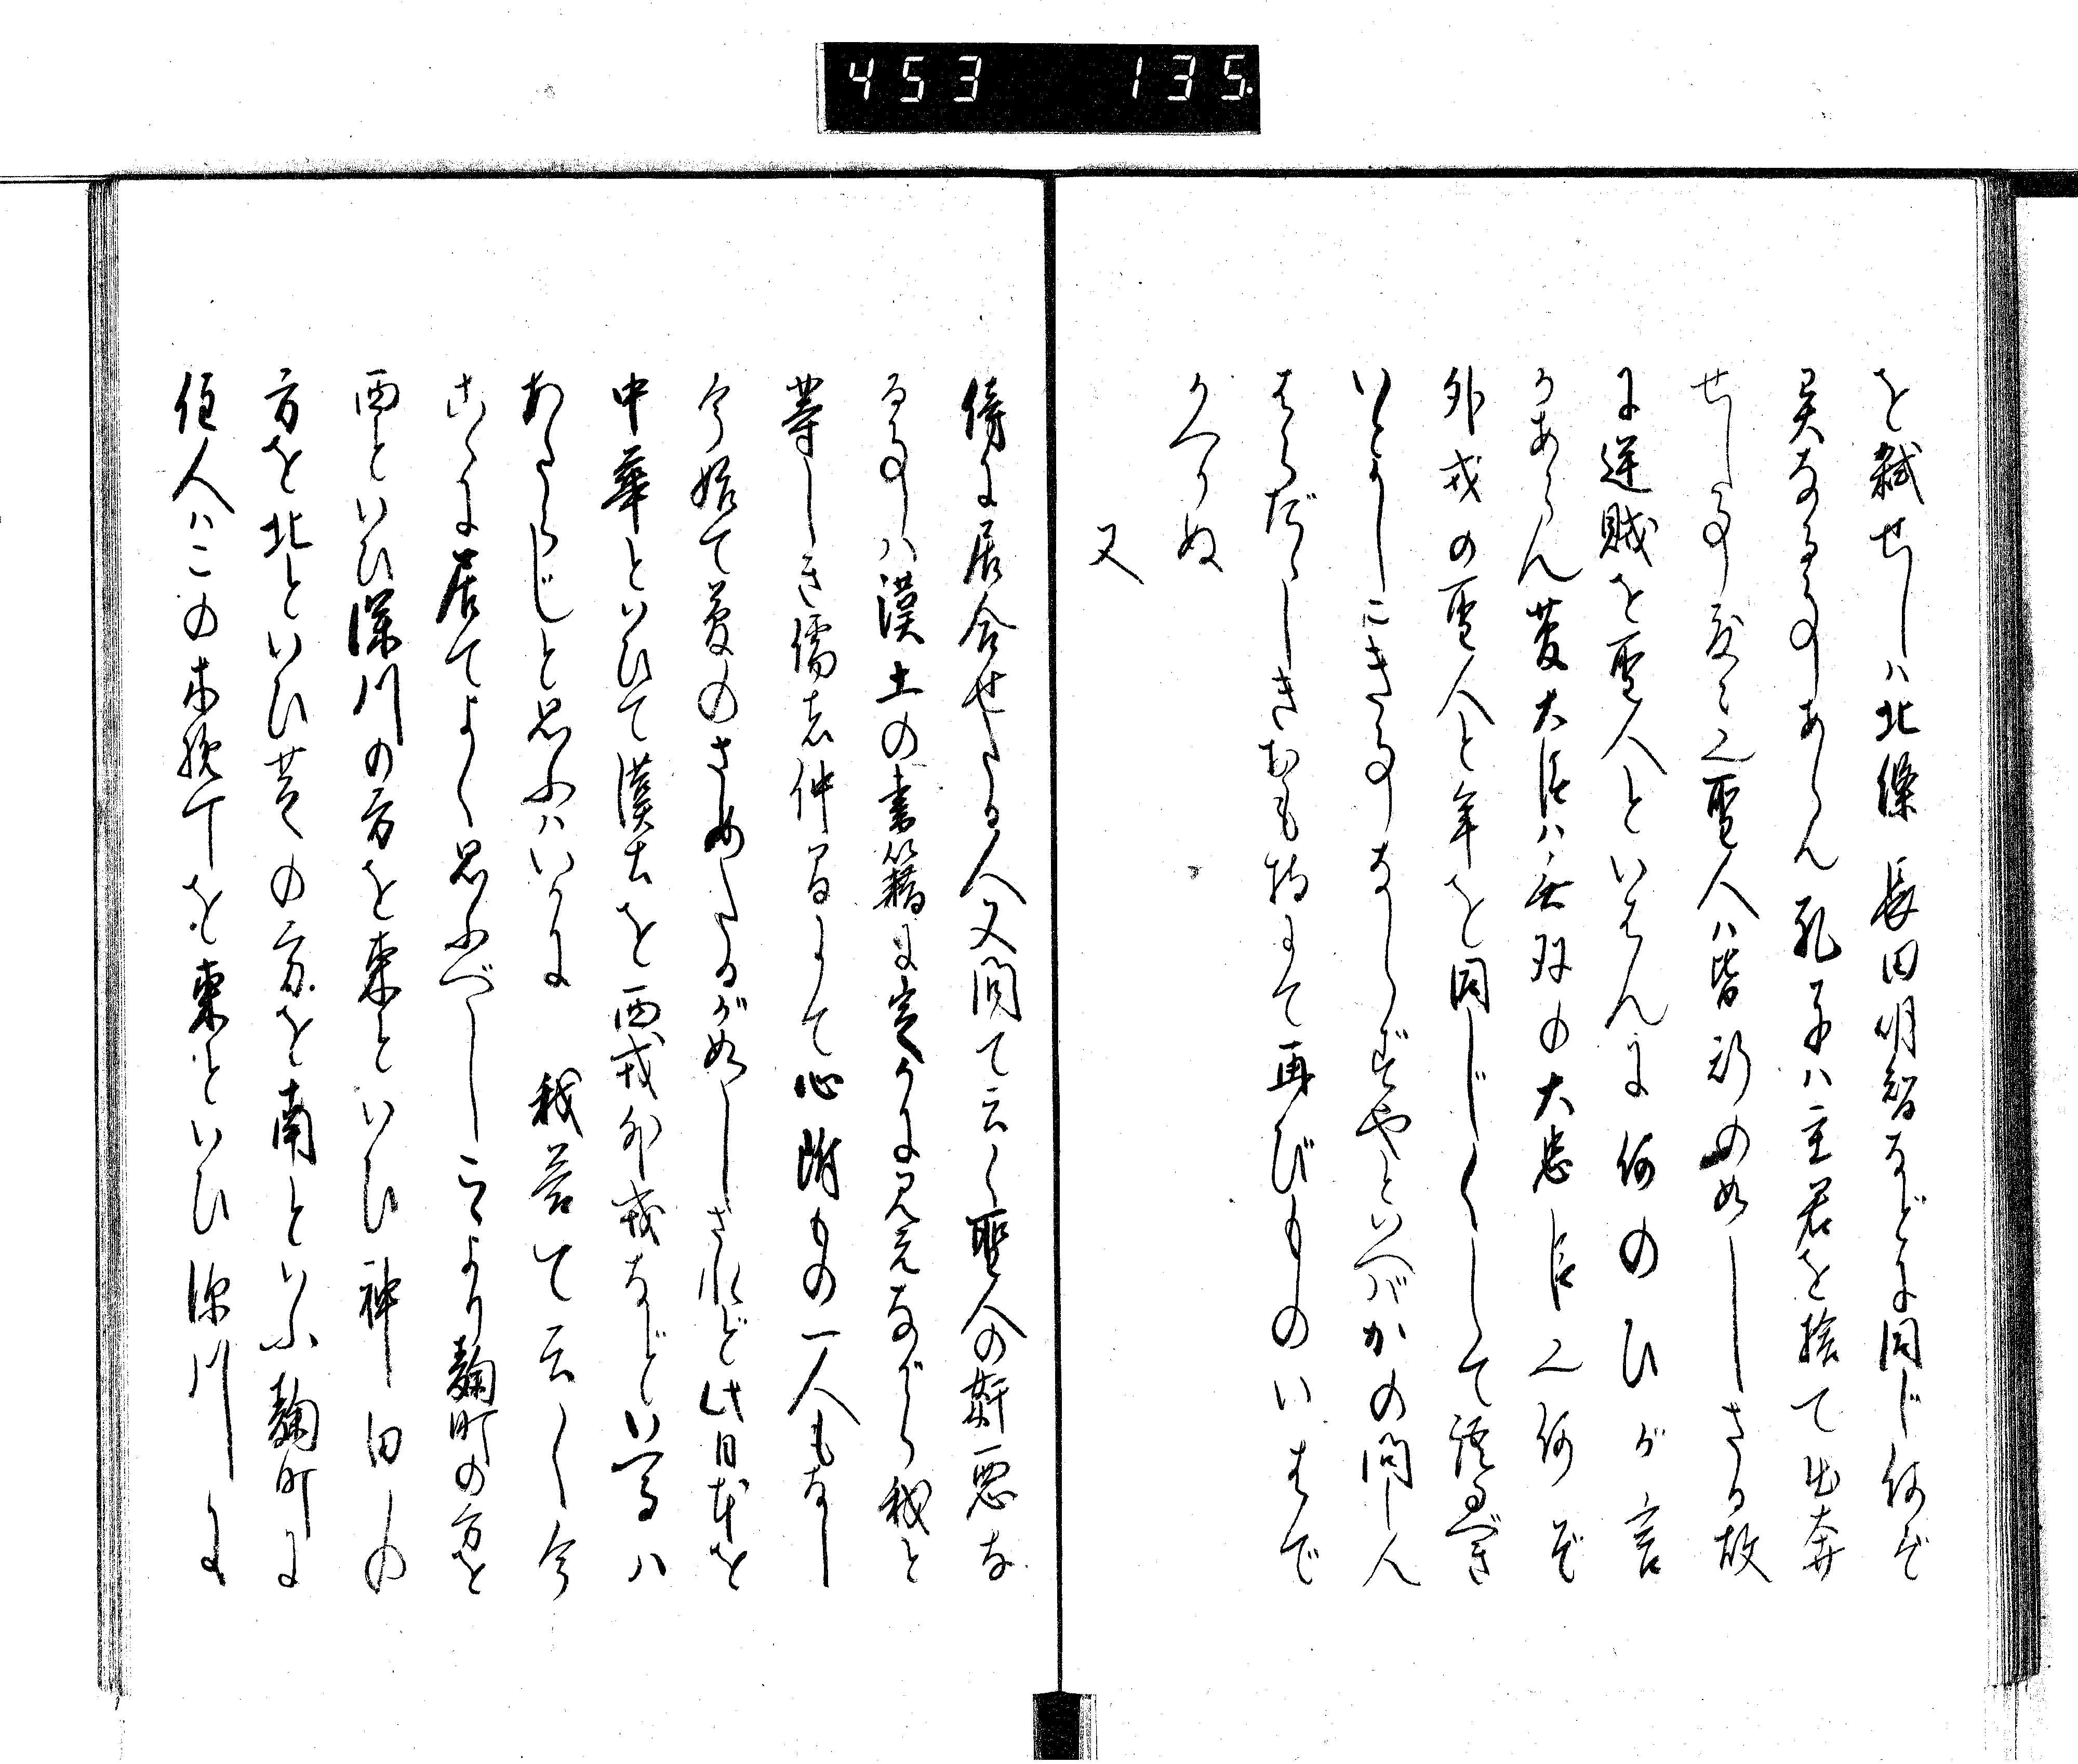 453 135
を弑せしハ北條長田明智などに同じ何ぞ
異なる事あらん孔子ハ主君を捨て出奔
せし事度々也聖人ハ皆行の如しさる故
に逆賊を聖人といはんに何のひが言
かあらん菅大臣ハ無双の大忠臣也何ぞ
外戎の聖人と年を同じくして語るべき
いとかしこき事ならずやといへバかの問し人
はらだゝしきおも持にて再びものいはで
かへりぬ
又
傍に居合せたる人又問て云く聖人の奸悪な
る事ハ漢土の書籍に定かに見えながら我と
等しき儒者仲間にて心附もの一人もなし
今始て夢のさめたるが如しされど此日本を
中華といひて漢土を西戎外戎などいへるハ
あたらじと思ふハいかに 我答て云く今
こゝに居てよく思ふべしこゝより麹町の方を
西といひ深川の方を東といひ神田の
方を北といひ芝の方を南といふ麹町に
住人ハこの木挽丁を東といひ深川に